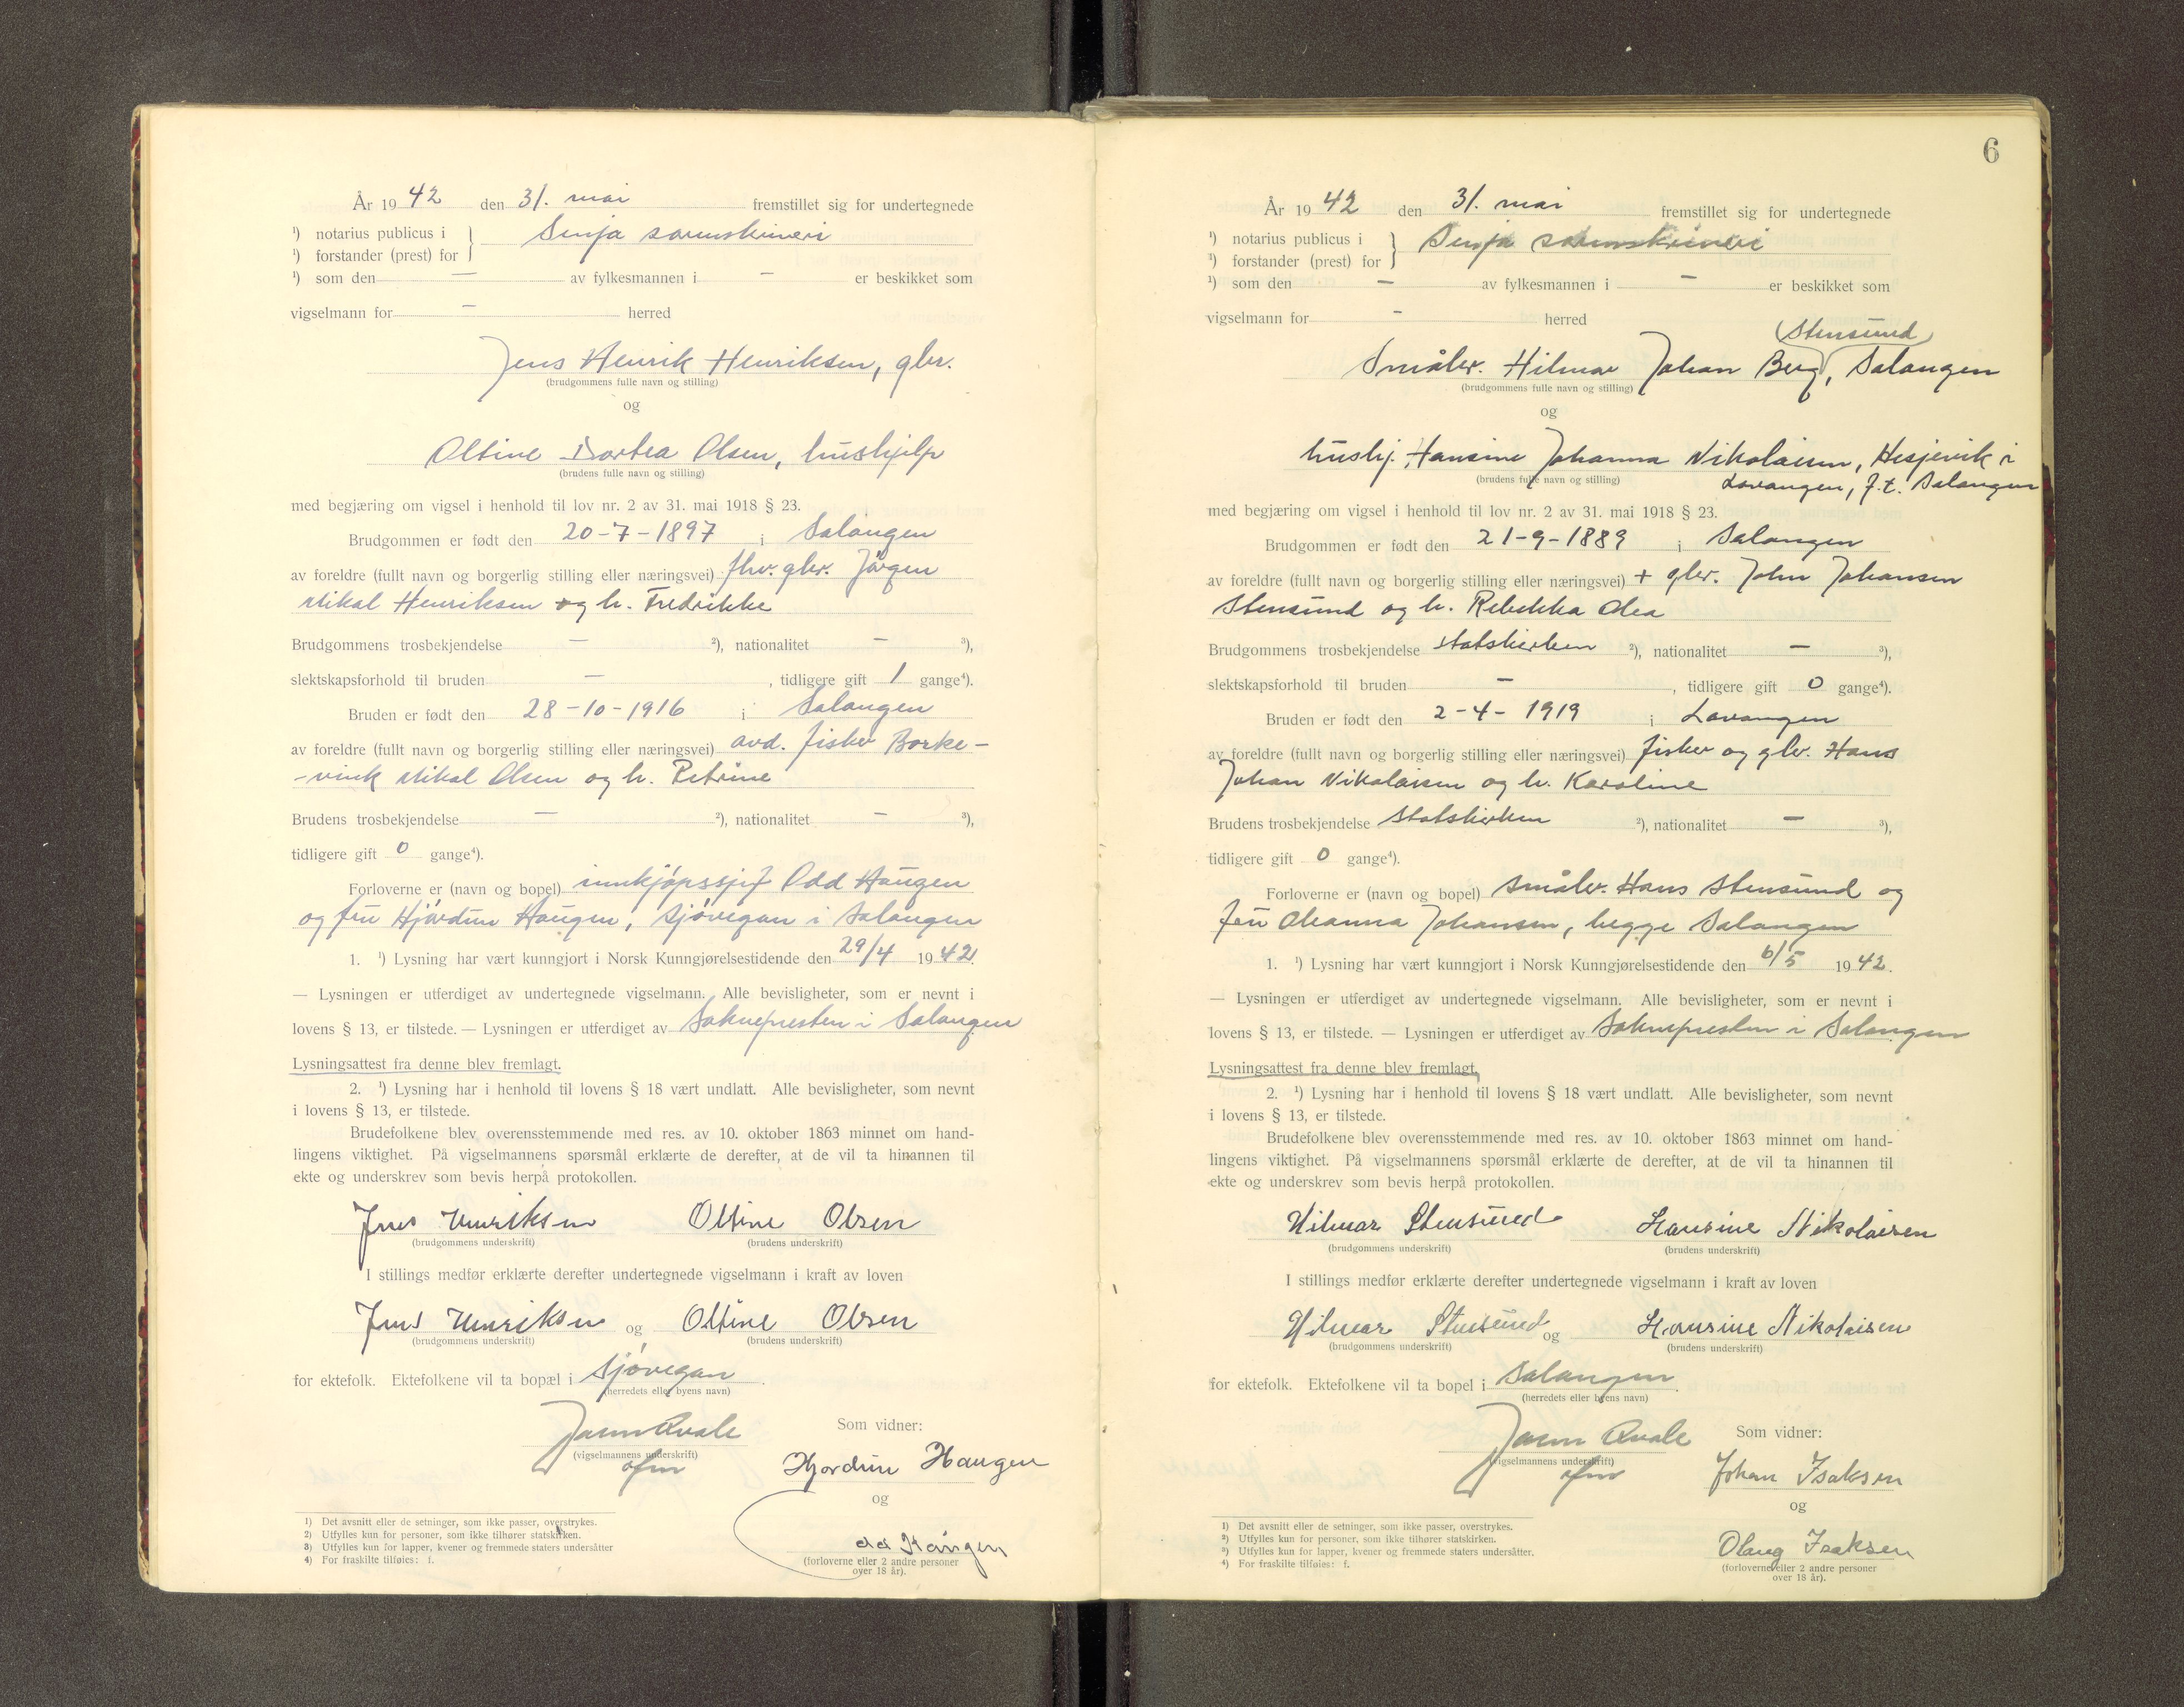 År 1942 den 31. mai fremstillet sig for undertegnede
¹) notarius publicus i } Senja sorenskriveri
¹) forstander (prest) for
¹) som den — av fylkesmannen i — er beskikket som
vigselmann for — herred
Jens Henrik Henriksen, gbr.
(brudgommens fulle navn og stilling)
og
Oltine Dortea Olsen, hushjelp
(brudens fulle navn og stilling)
med begjæring om vigsel i henhold til lov nr. 2 av 31. mai 1918 § 23.
Brudgommen er født den 20-7-1897 i Salangen
av foreldre (fullt navn og borgerlig stilling eller næringsvei) fhv. gbr. Jørgen
Mikal Henriksen og h. Fredrikke
Brudgommens trosbekjendelse — ²), nationalitet — ³),
slektskapsforhold til bruden — , tidligere gift 1 gange⁴).
Bruden er født den 28-10-1916 i Salangen
av foreldre (fullt navn og borgerlig stilling eller næringsvei) avd. fisker Borke-
-vink Mikal Olsen og h. Petrine
Brudens trosbekjendelse — ²), nationalitet — ³),
tidligere gift 0 gange⁴).
Forloverne er (navn og bopel) innkjøpssjef Odd Haugen
og fru Hjørdun Haugen, Sjøvegan i Salangen
1. ¹) Lysning har vært kunngjort i Norsk Kunngjørelsestidende den 29/4 1942.
— Lysningen er utferdiget av undertegnede vigselmann. Alle bevisligheter, som er nevnt i
lovens § 13, er tilstede. — Lysningen er utferdiget av Soknepresten i Salangen
Lysningsattest fra denne blev fremlagt.
2. ¹) Lysning har i henhold til lovens § 18 vært undlatt. Alle bevisligheter, som nevnt
i lovens § 13, er tilstede.
Brudefolkene blev overensstemmende med res. av 10. oktober 1863 minnet om hand-
lingens viktighet. På vigselmannens spørsmål erklærte de derefter, at de vil ta hinannen til
ekte og underskrev som bevis herpå protokollen.
Jens Henriksen Oltine Olsen
(brudgommens underskrift) (brudens underskrift)
I stillings medfør erklærte derefter undertegnede vigselmann i kraft av loven
Jens Henriksen og Oltine Olsen
(brudgommens underskrift) (brudens underskrift)
for ektefolk. Ektefolkene vil ta bopæl i Sjøvegan.
(herredets eller byens navn)
Som vidner:
Jørn Qvale
(vigselmannens underskrift)
Hjørdun Haugen
og
Odd Haugen
(forloverne eller 2 andre personer
over 18 år).
1) Det avsnitt eller de setninger, som ikke passer, overstrykes.
2) Utfylles kun for personer, som ikke tilhører statskirken.
3) Utfylles kun for lapper, kvener og fremmede staters undersåtter
4) For fraskilte tilføies: f.
6
År 1942 den 31. mai fremstillet sig for undertegnede
¹) notarius publicus i } Senja sorenskriveri
¹) forstander (prest) for
¹) som den — av fylkesmannen i — er beskikket som
vigselmann for — herred
(Stensund)
Småbr. Hilmar Johan Berg, Salangen
(brudgommens fulle navn og stilling)
og
hushj. Hansine Johanna Nikolaisen, Hesjevik i
(brudens fulle navn og stilling) Lavangen, f.t. Salangen
med begjæring om vigsel i henhold til lov nr. 2 av 31. mai 1918 § 23.
Brudgommen er født den 21-9-1889 i Salangen
av foreldre (fullt navn og borgerlig stilling eller næringsvei) + gbr. John Johansen
Stensund og h. Rebekka Olea
Brudgommens trosbekjendelse statskirken ²), nationalitet — ³),
slektskapsforhold til bruden — , tidligere gift 0 gange⁴).
Bruden er født den 2-4-1919 i Lavangen
av foreldre (fullt navn og borgerlig stilling eller næringsvei) fisker og gbr. Hans
Johan Nikolaisen og h. Karoline
Brudens trosbekjendelse Statskirken ²), nationalitet — ³),
tidligere gift 0 gange⁴).
Forloverne er (navn og bopel) småbr. Hans Stensund og
fru Oleanna Johansen, begge Salangen
1. ¹) Lysning har vært kunngjort i Norsk Kunngjørelsestidende den 6/5 1942.
— Lysningen er utferdiget av undertegnede vigselmann. Alle bevisligheter, som er nevnt i
lovens § 13, er tilstede. — Lysningen er utferdiget av Soknepresten i Salangen
Lysningsattest fra denne blev fremlagt.
2. ¹) Lysning har i henhold til lovens § 18 vært undlatt. Alle bevisligheter, som nevnt
i lovens § 13, er tilstede.
Brudefolkene blev overensstemmende med res. av 10. oktober 1863 minnet om hand-
lingens viktighet. På vigselmannens spørsmål erklærte de derefter, at de vil ta hinannen til
ekte og underskrev som bevis herpå protokollen.
Hilmar Stensund Hansine Nikolaisen
(brudgommens underskrift) (brudens underskrift)
I stillings medfør erklærte derefter undertegnede vigselmann i kraft av loven
Hilmar Stensund og Hansine Nikolaisen
(brudgommens underskrift) (brudens underskrift)
for ektefolk. Ektefolkene vil ta bopel i Salangen.
(herredets eller byens navn)
Som vidner:
Jørn Qvale
(vigselmannens underskrift)
Johan Isaksen
og
Olaug Isaksen
(forloverne eller 2 andre personer
over 18 år).
¹) Det avsnitt eller de setninger, som ikke passer, overstrykes.
²) Utfylles kun for personer, som ikke tilhører statskirken.
³) Utfylles kun for lapper, kvener og fremmede staters undersåtter.
⁴) For fraskilte tilføies: f.